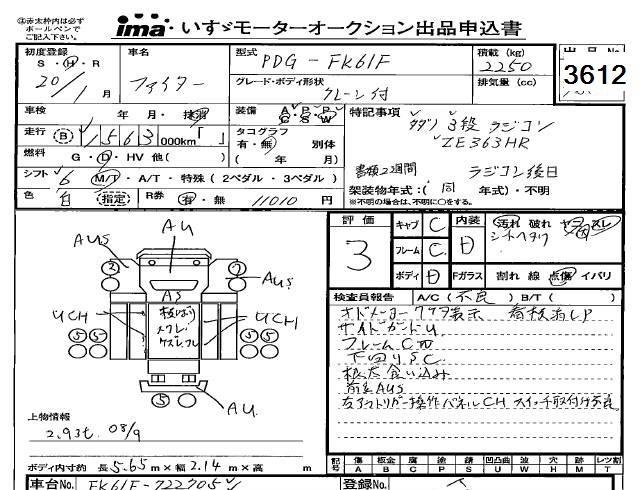 ④赤太枠内は必ず
ボールペンで
ご記入下さい。
ima いすゞモーターオークション出品申込書
初度登録 車名 型式 積載 (kg) 出品No.
S・H・R ファイター PDG - FK61F 2250 3612
20年 1月 グレード・ボディ形状 クレーン付 排気量 (cc)
車検 年 月・抹消 装備 A P P G S W 特記事項
走行 B 1563 000km「 」 タコグラフ 有・無 別体 ( 年 月) タダノ 3段 ラジコン
ZE363HR
燃料 G・D・HV 他( ) 書類2週間 ラジコン後日
シフト 6 M/T・A/T・特殊 (2ペダル・3ペダル) 架装物年式:(同 年式)・不明
※不明の場合は、不明に○をする。
色 白 指定 R券 有・無 11010 円
評価 3
キャブ C 内装 D 汚れ 破れ ヤコゲ スレ
シートヘタリ
フレーム C
ボディ D Fガラス 割れ 線 点傷 イパリ
AUS AU
② ②
AUS
AS
UCH 板ばり UCH
スクレ
⑤ ⑤
⑤ AU
検査員報告 A/C (不良) B/T ( )
オドメーター 表示 看板消しP
サイドガードU
フレームC
下回りSC
板穴食い込み
前足AUS
右アウトリガー操作パネルCH スイッチ取付け不良
上物情報
2.93t 08/9
ボディ内寸約 長 5.65 m × 幅 2.14 m × 高 m
記号 傷 A 板金 B 腐 C 塗 P 錆 S 凹凸曲 U 波 W 穴 H 跡 M レツ割 T
車台No. FK61F-722705 登録No.